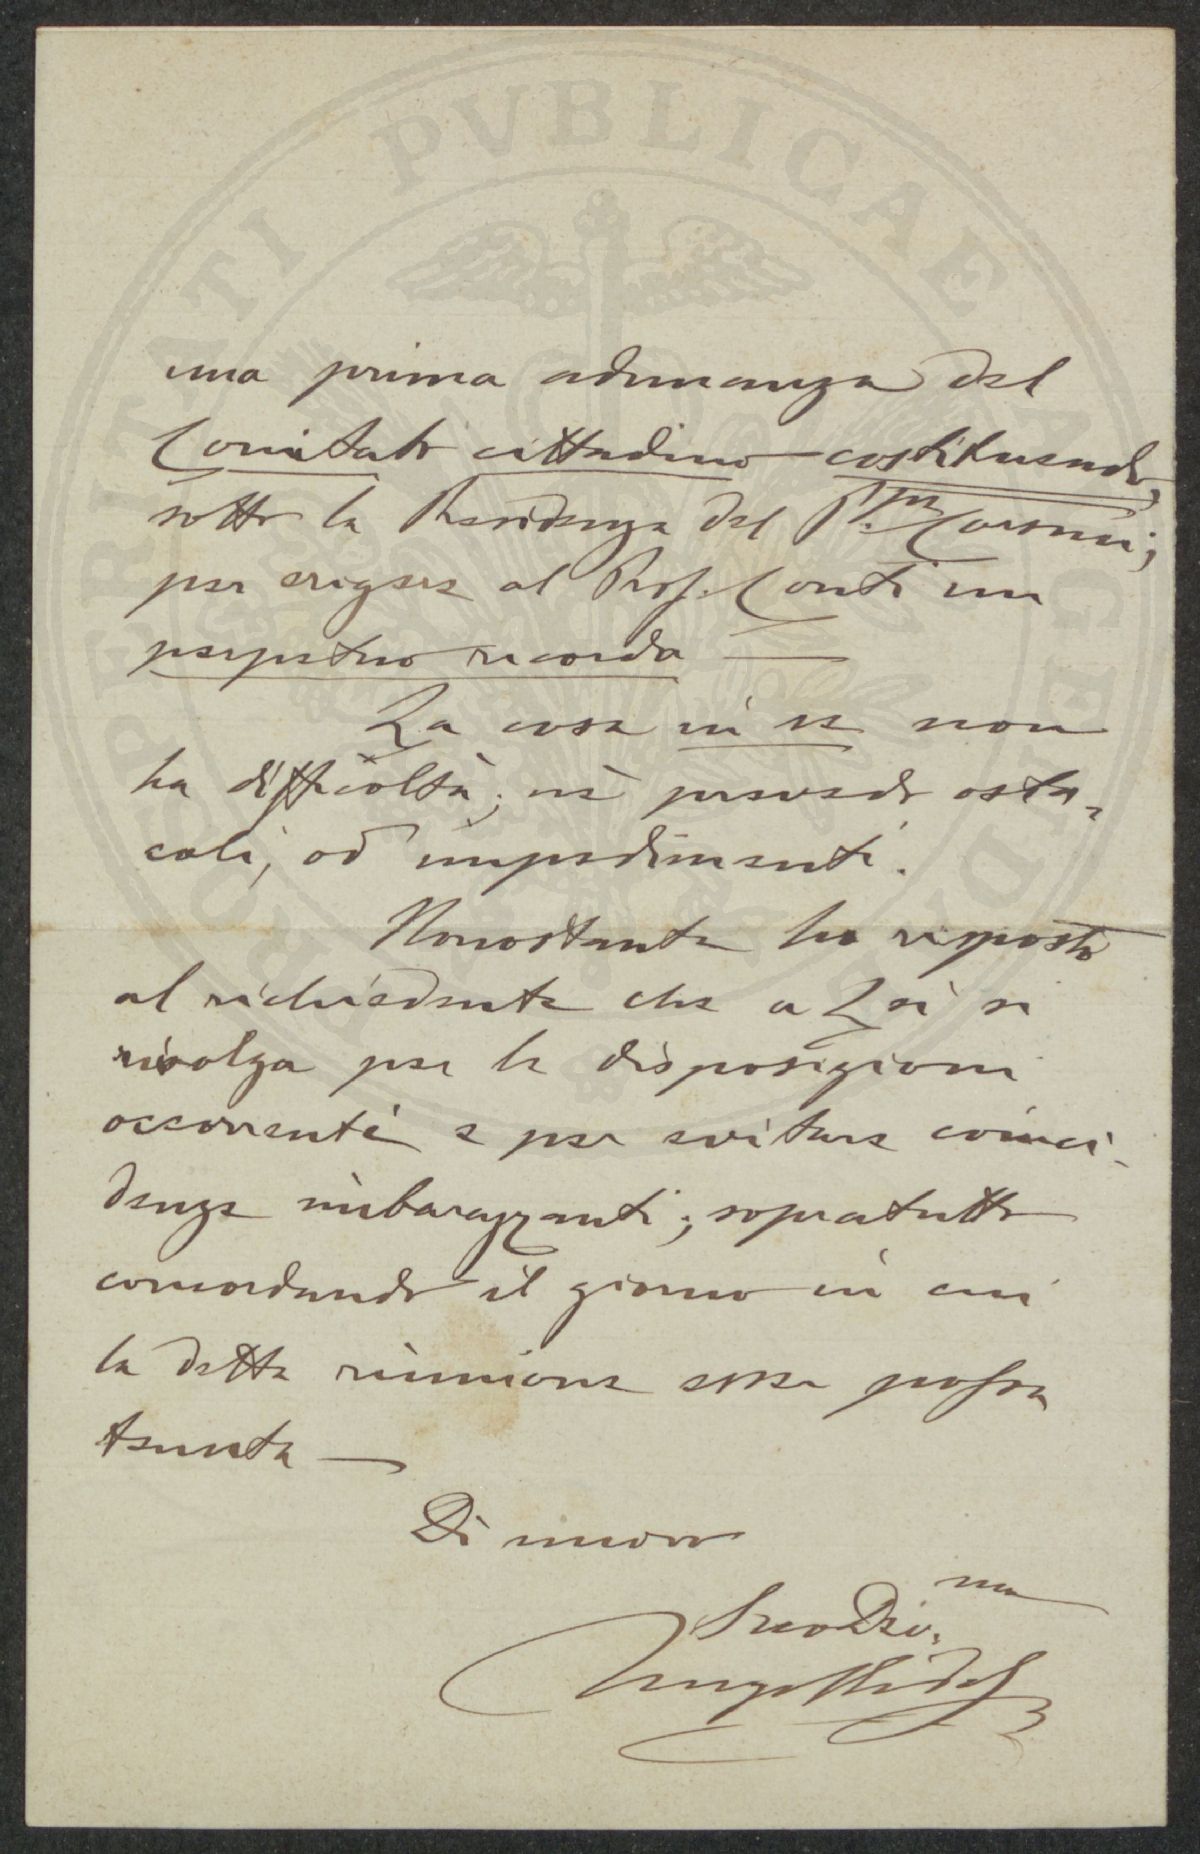 una prima adunanza del
Comitato cittadino costituendo,
sotto la Presidenza del P.pe Corsini;
per erigere al Prof. Conti un
perpetuo ricordo —
La cosa in se non
ha difficoltà; nè prevedo osta-
coli, od impedimenti.
Nonostante ho risposto
al richiedente che a Lei si
rivolga per le disposizioni
occorrenti e per evitare coinci-
denze imbarazzanti; sopratutto
concordando il giorno in cui
la detta riunione esser possa
tenuta —
Di nuovo
Suo Dev.mo
PROSPERITATI PVBLICAE